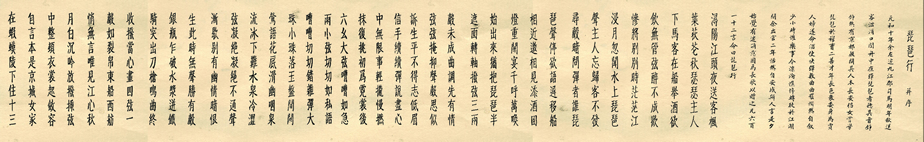 琵琶行 并序
元和十年余左遷九江郡司馬明年秋送
客湓浦口聞舟中夜彈琵琶者聽其音錚
錚然有京都聲問其人本長安倡女嘗學
琵琶於穆曹二善才年長色衰委身為賈
人婦遂命酒使快彈數曲曲罷憫然自敘
少小時歡樂事今漂淪憔悴轉徙於江湖
間余出官二年恬然自安感斯人言是夕
始覺有遷謫意因為長句歌以贈之凡六百
一十二言命曰琵琶行
潯陽江頭夜送客楓
葉荻花秋瑟瑟主人
下馬客在船舉酒欲
飲無管弦醉不成歡
慘將別別時茫茫江
浸月忽聞水上琵琶
聲主人忘歸客不發
尋聲暗問彈者誰琵
琶聲停欲語遲移船
相近邀相見添酒回
燈重開宴千呼萬喚
始出來猶抱琵琶半
遮面轉軸撥弦三兩
聲未成曲調先有情
弦弦掩抑聲聲思似
訴生平不得志低眉
信手續續彈說盡心
中無限事輕攏慢撚
抹復挑初為霓裳後
六幺大弦嘈嘈如急
雨小弦切切如私語
嘈嘈切切錯雜彈大
珠小珠落玉盤間關
鶯語花底滑幽咽泉
流冰下難水泉冷澀
弦凝絕凝絕不通聲
漸歇別有幽情暗恨
生此時無聲勝有聲
銀瓶乍破水漿迸鐵
騎突出刀槍鳴曲終
收撥當心畫四弦一
聲如裂帛東船西舫
悄無言唯見江心秋
月白沉吟放撥插弦
中整頓衣裳起斂容
自言本是京城女家
在蝦蟆陵下住十三